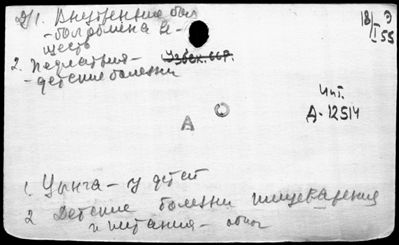 Д/1. Внутренние бол
- бол. обмена в-
ществ
2. Педиатрия - Узбек. ССР.
- детские болезни
18/I 55
Инт.
Д-12514
А
1. Цынга - у детей
2 Детские болезни пищеварения
и питания -